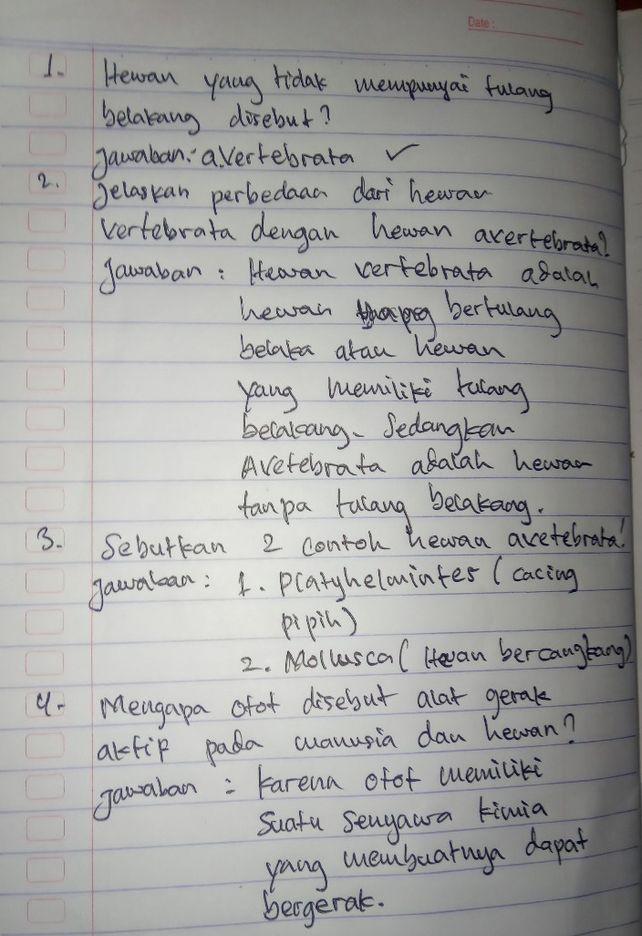 Date :
1. Hewan yang tidak mempunyai tulang
belakang disebut?
Jawaban : avertebrata ✓
2. Jelaskan perbedaan dari hewan
vertebrata dengan hewan avertebrata?
Jawaban : Hewan vertebrata adalah
hewan bertulang
belaka atau hewan
yang memiliki tulang
belakang. Sedangkan
Avetebrata adalah hewan
tanpa tulang belakang.
3. Sebutkan 2 contoh hewan avetebrata!
Jawaban : 1. Platyhelmintes (cacing
pipih)
2. Mollusca (Hewan bercangkang)
4. Mengapa otot disebut alat gerak
aktif pada manusia dan hewan?
Jawaban : karena otot memiliki
suatu senyawa kimia
yang membuatnya dapat
bergerak.